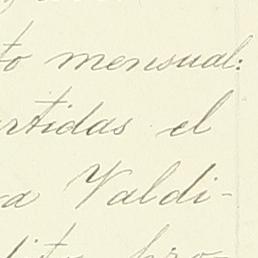 to mensual:
rtidas el
a Valdi-